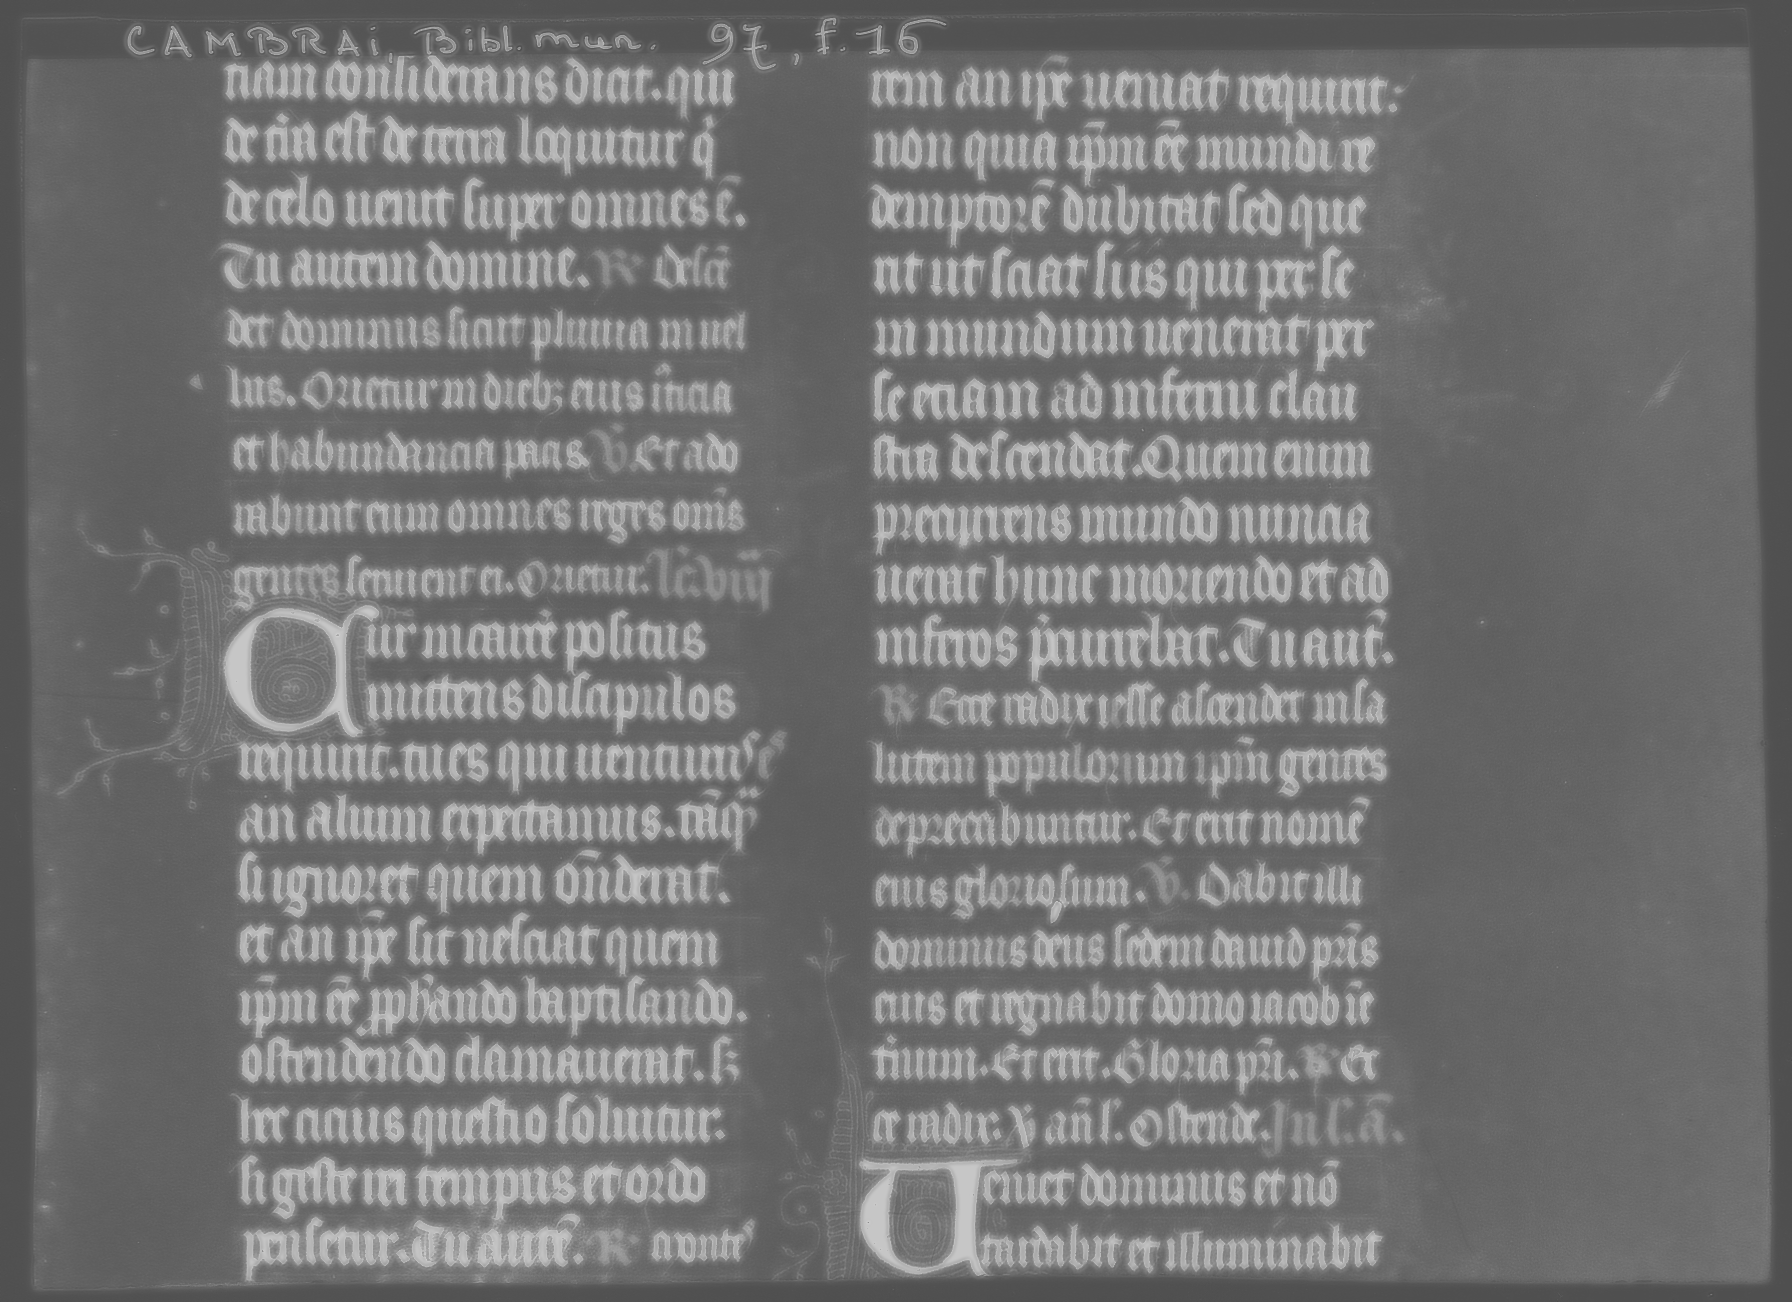 CAMBRAI, Bibl. mun. 97, f. 16
tiam considerans dicit. qui
de t͛ra est de terra loquitur q̇
de celo uenit super omnes ē.
Tu autem domine. R̸ descē
det dominus sicut pluuia in uel
lus. Orietur in diebꝫ eius iusticia
et habundancia pacis. V̸. Et ado
rabunt eum omnes reges om̄s
gentes seruient ei. Orietur. lc̄. viij
Cur in carcē positus
mittens discipulos
requirit. tu es qui uenturus es
an alium expectamus. tāqͣ
si ignoret quem on̄derat.
et an ip̄e sit nesciat quem
ip̄m eē ꝓph̄ando baptisando.
ostendendo clamauerat. sꝫ
hec cicius questio soluitur:
si geste rei tempus et ordo
pensetur. Tu autē. R̸
rem an ip̄e ueniat requirit:
non quia ip̄m eē mundi re
demptorē dubitat sed que
rit ut sciat si is qui per se
in mundum uenerat per
se etiam ad inferni clau
stra descendat. Quem enim
precurrens mundo nuncia
uerat hunc moriendo et ad
inferos p̄currebat. Tu aut̄.
R̸ Ecce radix iesse ascendet in sa
lutem populorum ip̄m gentes
deprecabuntur. Et erit nomē
eius gloriosum. V̸. Dabit illi
dominus deus sedem dauid pr̄is
eius et regnabit domo iacob ī e
t̄num. Et erit. Gloria pr̄i. R̸ Ec
ce radix. V̸ an̄ l. Ostende. In l. ā.
Veniet dominus et nō
tardabit et illuminabit